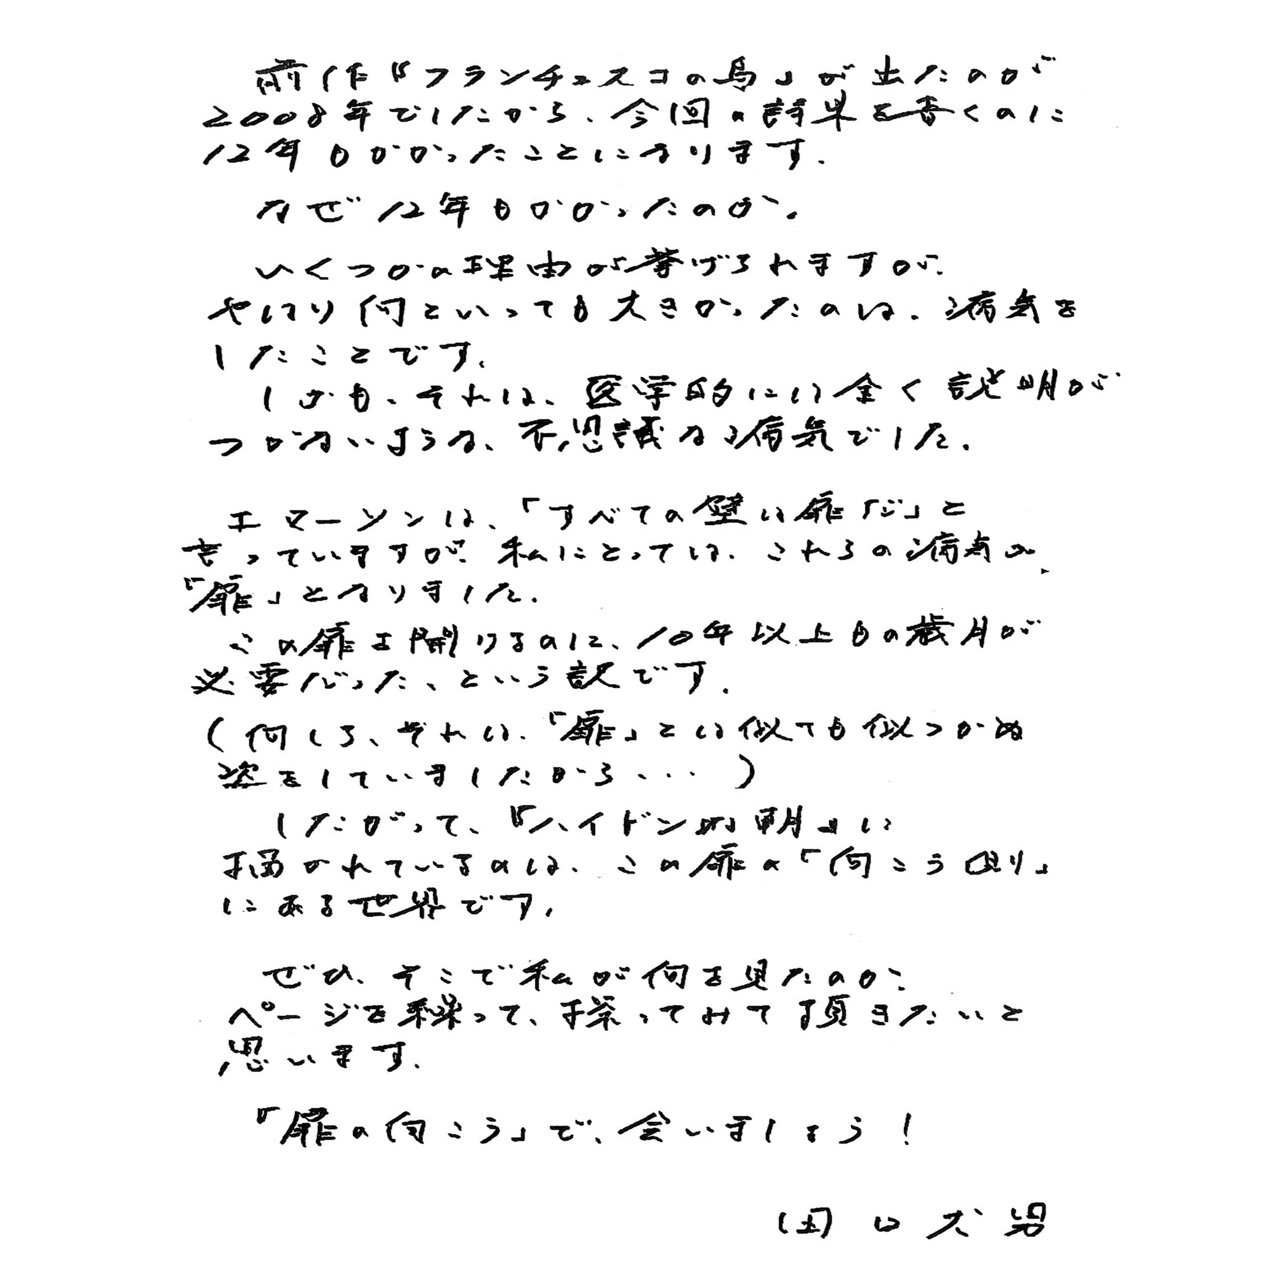 前作『フランチェスコの鳥』が出たのが
2008年でしたから、今回の詩集を書くのに
12年もかかったことになります。
なぜ12年もかかったのか。
いくつかの理由が挙げられますが、
やはり何といっても大きかったのは、病気を
したことです。
しかも、それは、医学的には全く説明が
つかないような、不思議な病気でした。
エマーソンは、「すべての壁は扉「だ」と
言っていますが、私にとっては、これらの病気が、
「扉」となりました。
この扉を開けるのに、10年以上もの歳月が
必要だった、という訳です。
(何しろ、それは、「扉」とは似ても似つかぬ
姿をしていましたから・・・)
したがって、『ハイドンな朝』に
描かれているのは、この扉の「向こう側」
にある世界です。
ぜひ、そこで私が何を見たのか、
ページを繰って、探ってみて頂きたいと
思います。
「扉の向こう」で、会いましょう!
田口犬男